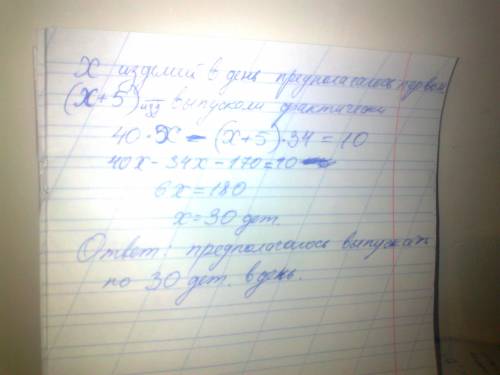 X изделий в день предполагалось первон
(X+5) изд выпускали фактически
40·X - (x+5)·34 = 10
40x - 34x - 170 = 10
6x = 180
x = 30 дет.
Ответ: предполагалось выпускать
по 30 дет. в день.